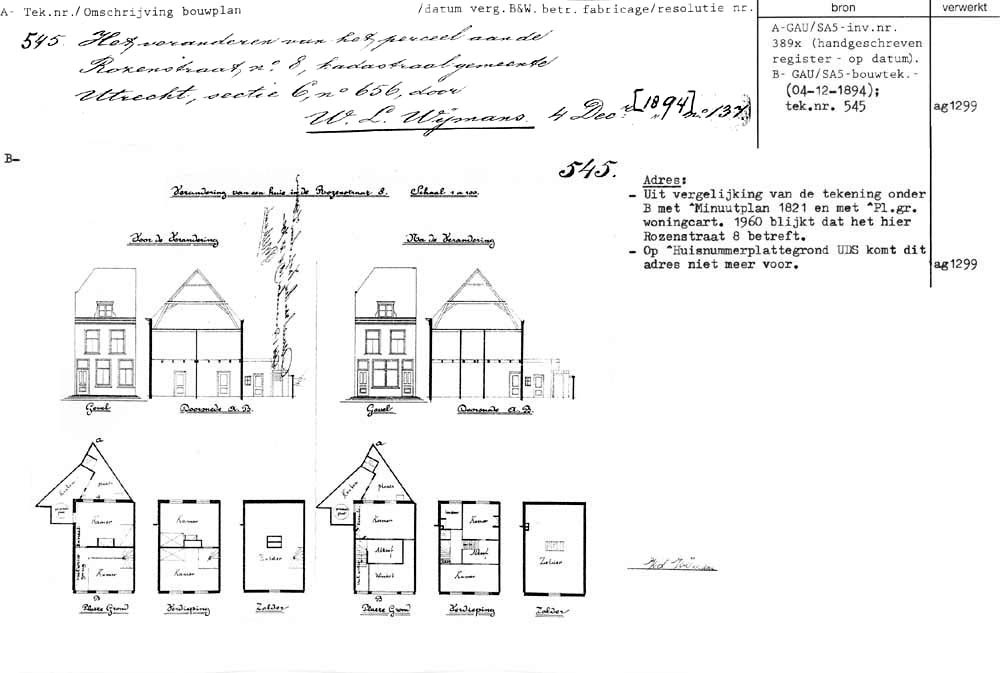 A- Tek.nr./Omschrijving bouwplan /datum verg.B&W. betr. fabricage/resolutie nr. bron verwerkt
545. Het veranderen van het perceel aan de
Rozenstraat, no. 8, kadastraal gemeente
Utrecht, sectie C, no 656, door
W. L. Wijmans. 4 Dec. [1894] no 137
A-GAU/SA5-inv.nr.
389x (handgeschreven
register - op datum).
B- GAU/SA5-bouwtek.-
(04-12-1894);
tek.nr. 545 ag1299
B-
545.
Adres:
- Uit vergelijking van de tekening onder
B met ^Minuutplan 1821 en met ^Pl.gr.
woningcart. 1960 blijkt dat het hier
Rozenstraat 8 betreft.
- Op ^Huisnummerplattegrond UDS komt dit
adres niet meer voor. ag1299
Verandering van een huis in de Rozenstraat 8. Schaal 1 a 100.
Voor de Verandering Na de Verandering
Gevel Doorsnede A.B. Gevel Doorsnede A.B.
a a
keuken plaats keuken plaats
Kamer Kamer Zolder Kamer Kamer Zolder
Alkoof Alkoof
Kamer Kamer Winkel Kamer
B B
Platte Grond Verdieping Zolder Platte Grond Verdieping Zolder